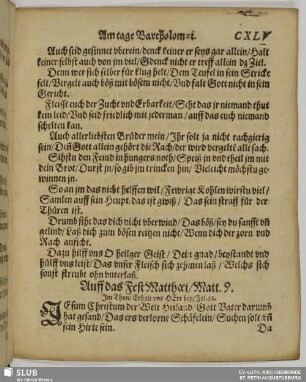 Am tage Bartholomæi. CXLV
Auch seid gesinnet vberein/denck keiner er seys gar allein/Halt
keiner selbst auch von jm viel/Gdenck nicht er treff allein dz Ziel.
Denn wer sich selber für klug helt/Dem Teufel in sein Stricke
felt/Vergelt auch böß mit bösen nicht/Und falt Gott nicht in sein
Gericht.
Fleist euch der Zucht vnd Erbarkeit/Seht das jr niemand thut
kein leid/Und seid friedlich mit jederman/auff das euch niemand
schelten kan.
Auch allerliebsten Brüder mein/Ihr solt ja nicht rachgierig
sein/Dañ Gott allein gehört die Rach/der wird vergeltē alle sach.
Sihstu den Feind in hungers noth/Speiß jn vnd theil jm mit
dein Brot/Durst jn/so gib jm trincken hin/Vieleicht möchstu ge-
winnen jn.
So an jm das nicht helffen wil/Fewrige Kohlen wirstu viel/
Samlen auff sein Heupt/das ist gwiß/Das sein straff für der
Thüren ist.
Drumb sihe das dich nicht vberwind/Das böß/sey du sanfft vñ
gelind/Laß dich zum bösen reitzen nicht/Wenn dich der zorn vnd
Rach anficht.
Dazu hilff vns O heiliger Geist/Dein gnad/beystandt vnd
hülff vns leist/Das vnser Fleisch sich zehmen laß/Welchs sich
sonst streubt ohn vnterlaß.
Auff das Fest Matthæi/Matt. 9.
Im Thon/Erhalt vns HErr bey/
JEsum Christum der Welt Heiland/Gott Vater darumb
hat gesand/Das ers verlorne Schäflein/Suchen solt vñ
sein Hirte sein.
Da
SLUB
Wir führen Wissen.
EV.-LUTH. KIRCHGEMEINDE
ST. PETRI AUGUSTUSBURG